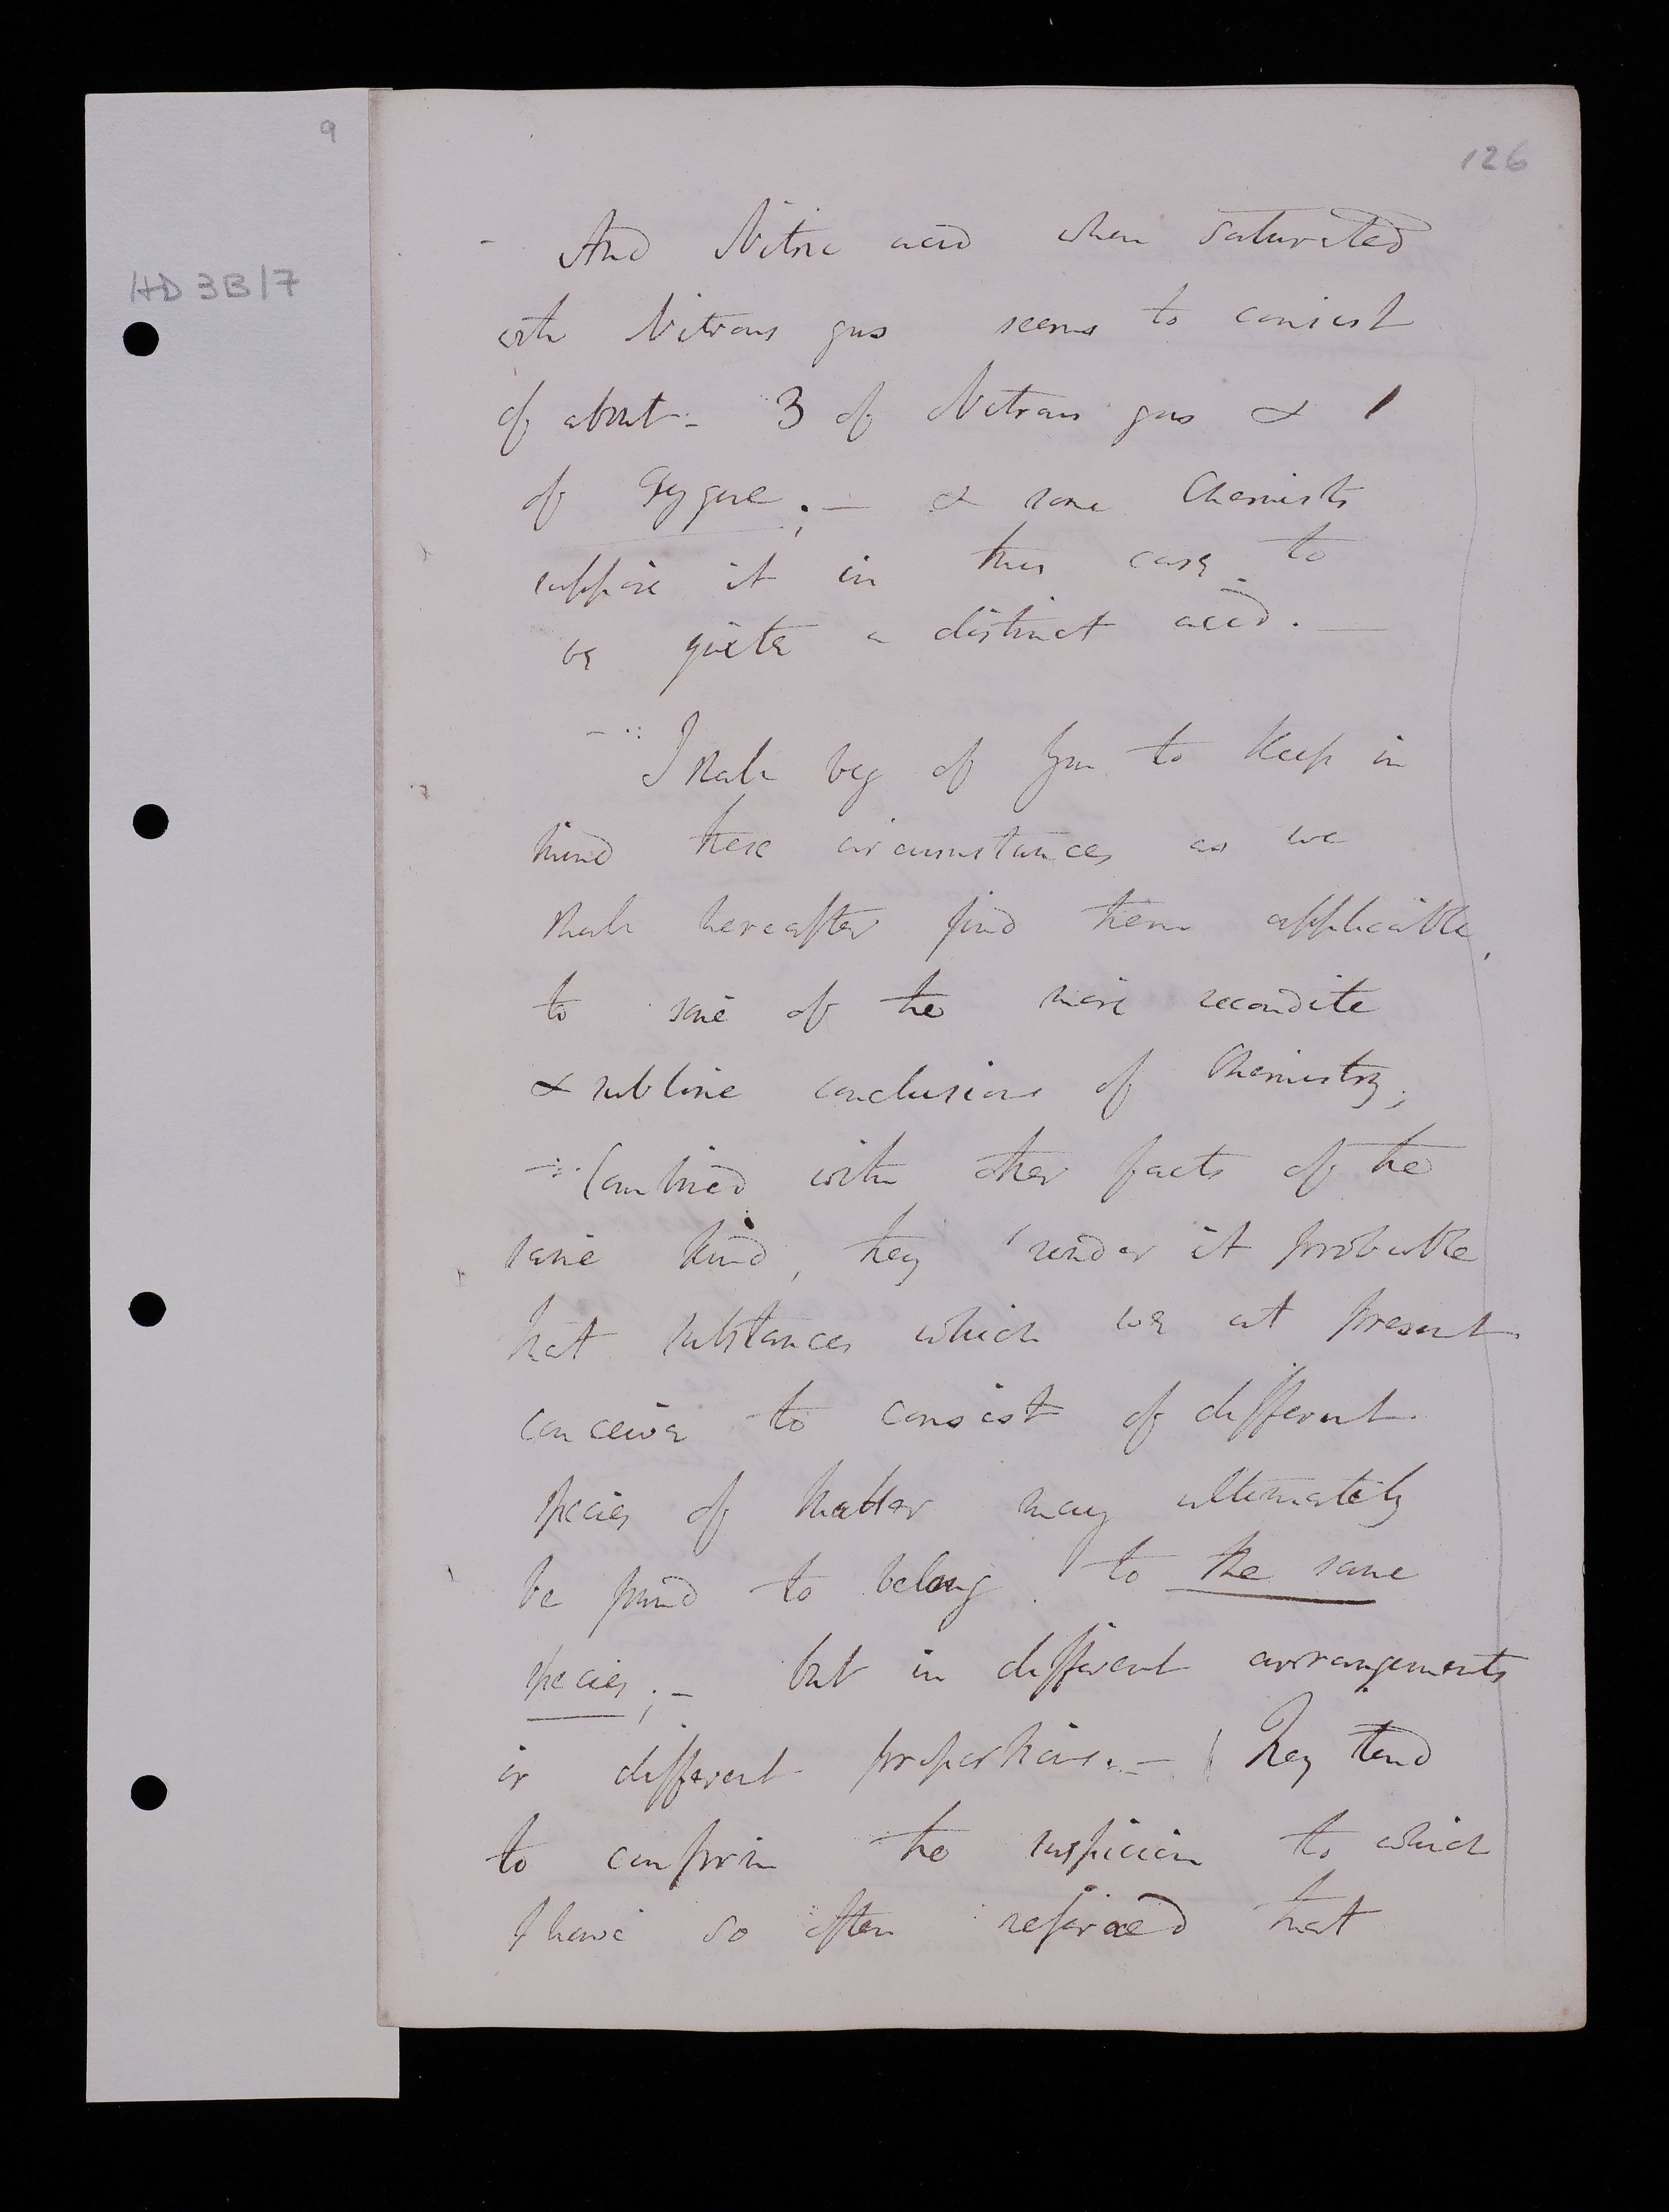 9
126
HD 3B/7
- And Nitric acid when saturated
with Nitrous gas seems to consist
of about - 3 of Nitrous gas & 1
of Oxygene; — & some Chemists
suppose it in this case to
be quite a distinct acid. —
- I shall beg of you to keep in
mind these circumstances as we
shall hereafter find them applicable,
to some of the more recondite
& sublime conclusions of Chemistry;
- Combined with other facts of the
same kind, they render it probable
that substances which we at present
conceive to consist of different
species of matter may ultimately
be found to belong to the same
species; - but in different arrangements
or different proportions. - They tend
to confirm the suspicion to which
I have so often referred that